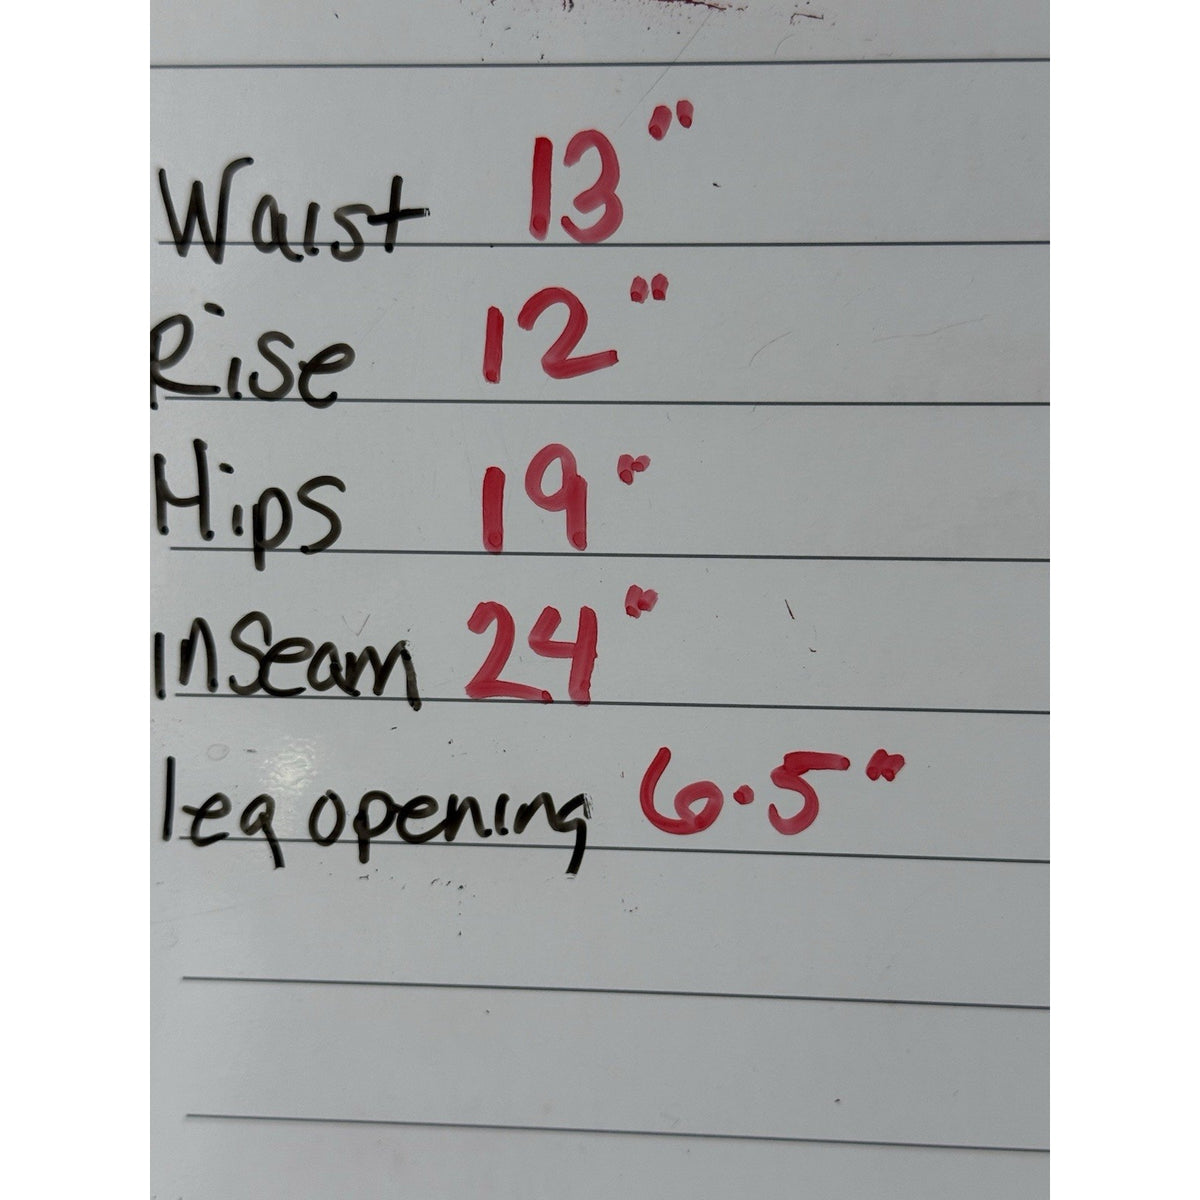 Waist 13"
Rise 12"
Hips 19"
inseam 24"
leg opening 6.5"